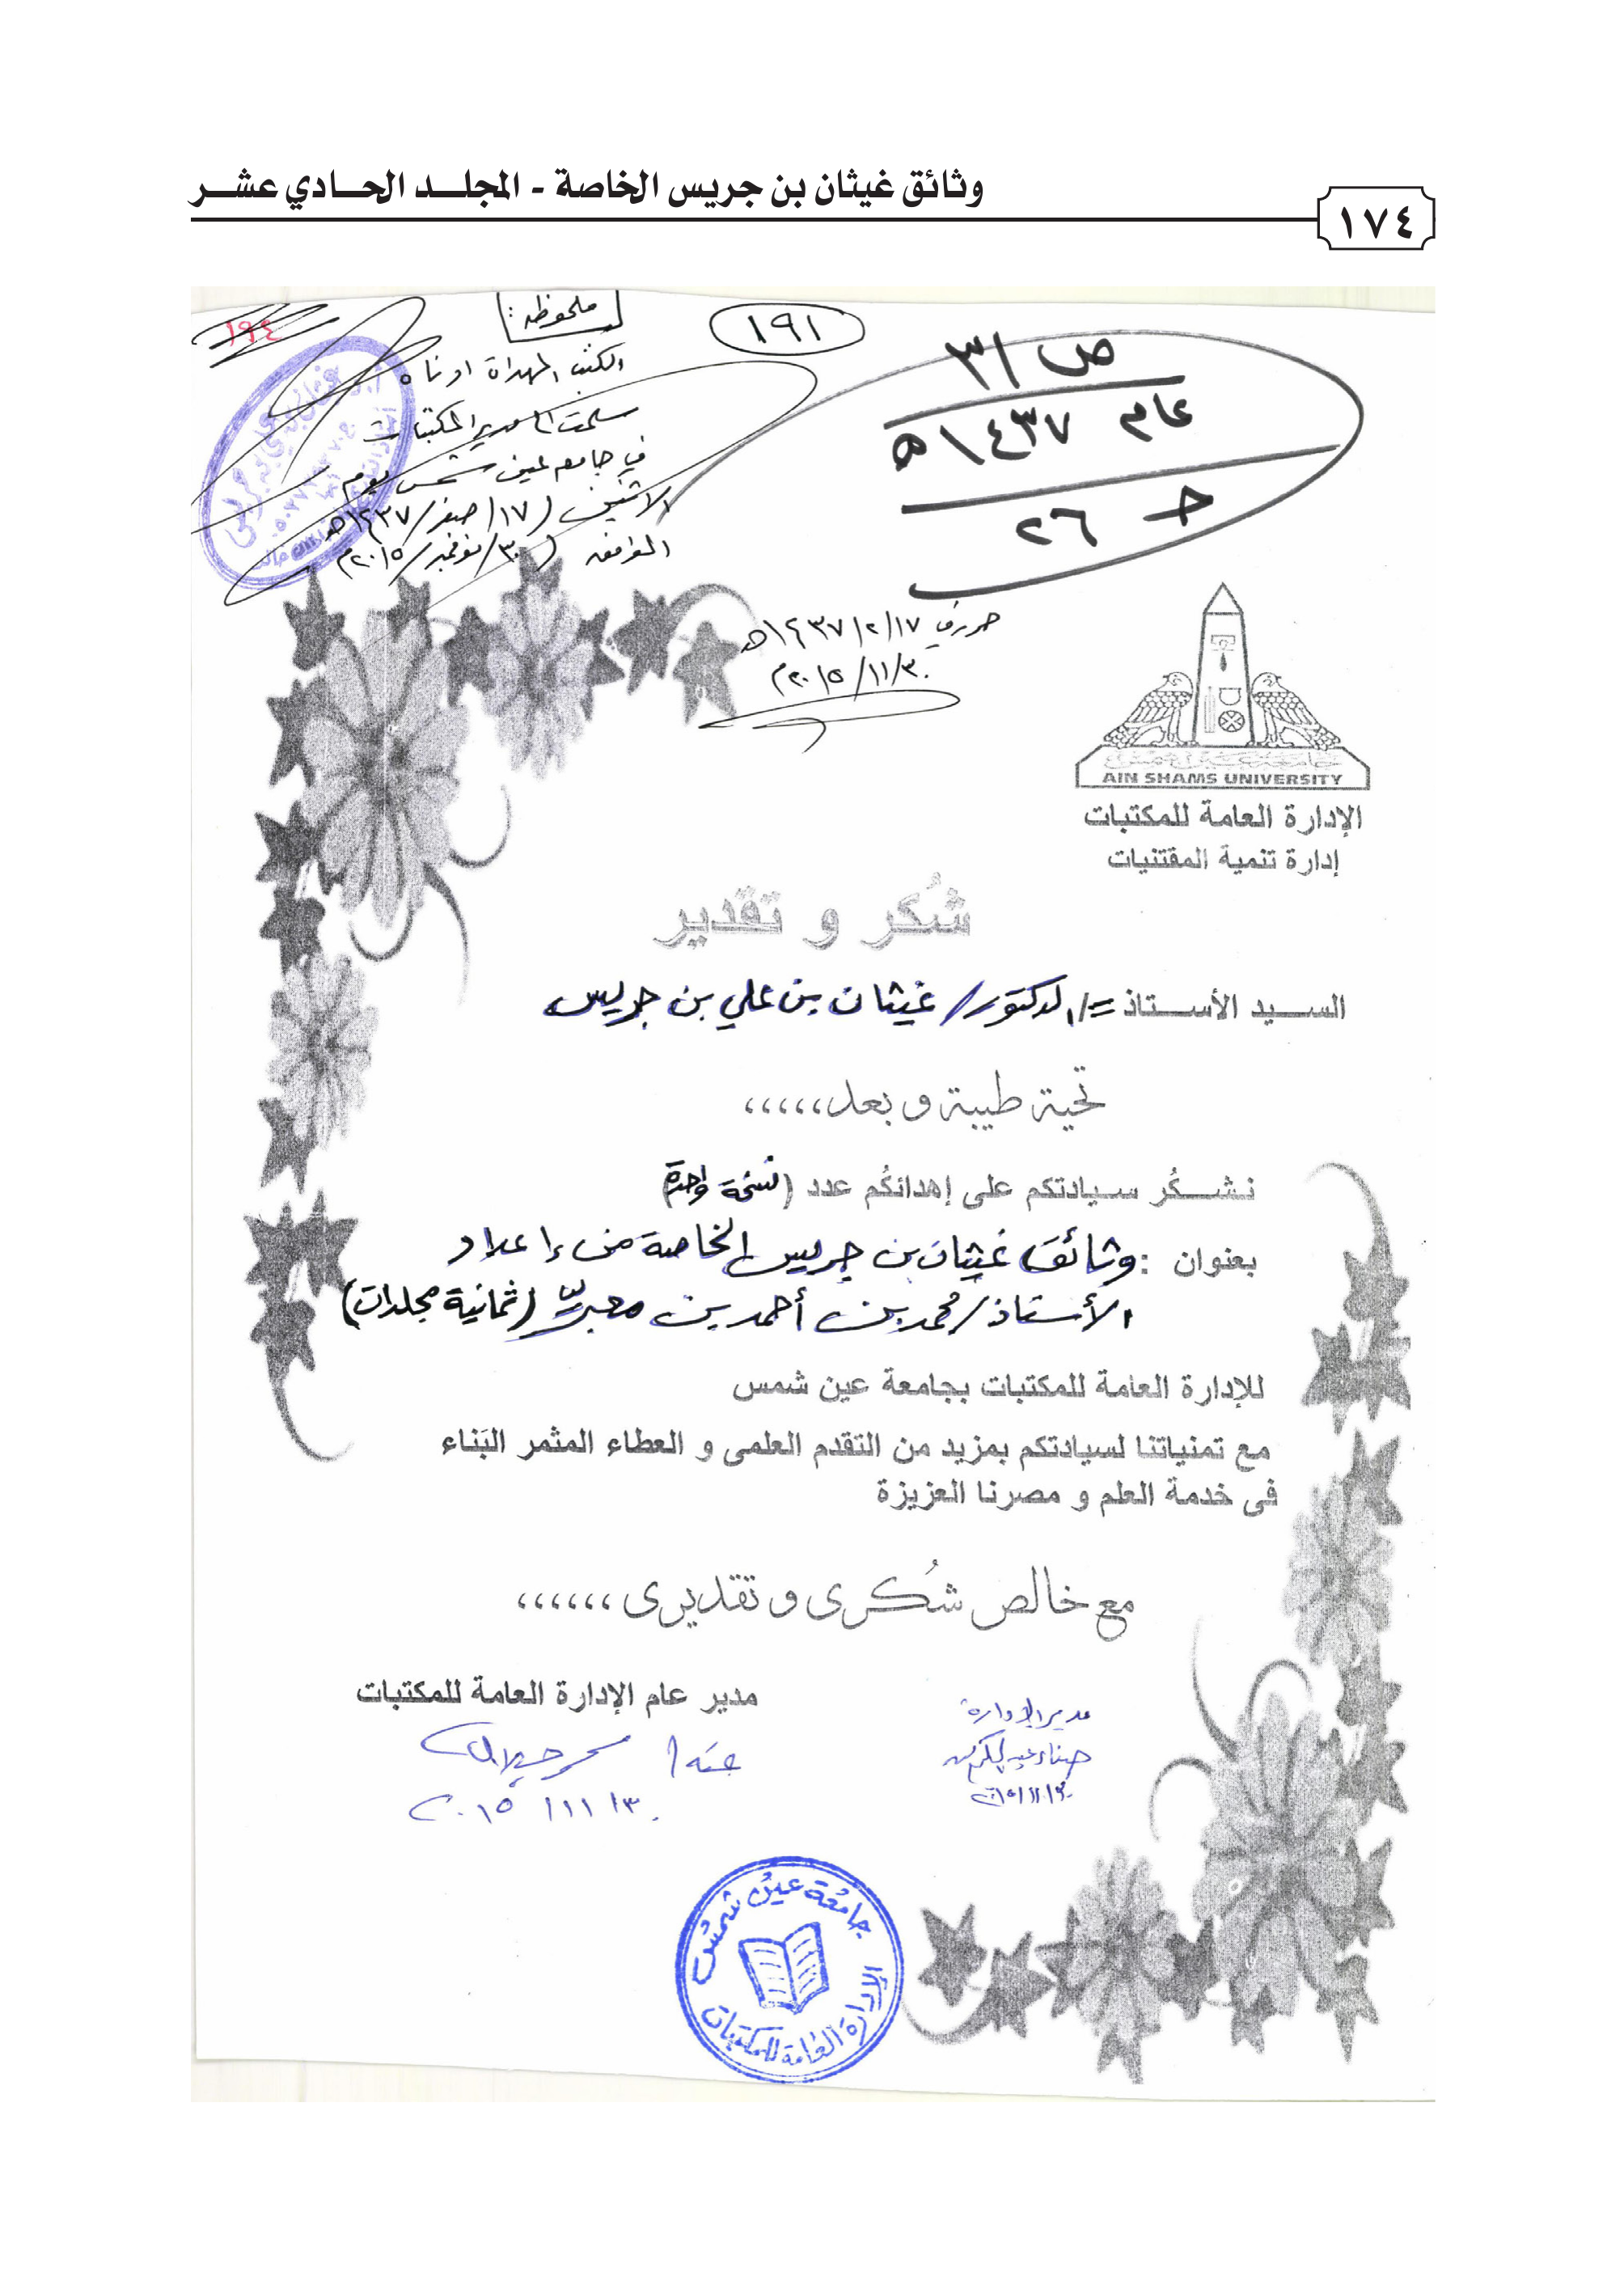 وثائق غيثان بن جريس الخاصة - المجلـد الحـادي عشـر
١٧٤
١٩٤
ملحوظة:
الكتب المهداة ادناه
سلمت الى مدير المكتبات
في جامعة عين شمس يوم
الاثنين (١٧/صفر/١٤٣٧هـ)
الموافق (٣٠/نوفمبر/٢٠١٥م)
١٩١
ص/٣
عام ١٤٣٧هـ
حـ ٢٦
حرر في ١٤٣٧/٢/١٧هـ
٢٠١٥/١١/٣٠م
جامعة عين شمس
AIN SHAMS UNIVERSITY
الإدارة العامة للمكتبات
إدارة تنمية المقتنيات
شُكر و تقدير
السـيد الأسـتاذ =/الدكتور/ غيثان بن علي بن جريس
تحية طيبة و بعد،،،،،
نـشـكُر سـيادتكم على إهدائكُم عدد (نسخة واحدة)
بعنوان : وثائق غيثان بن جريس الخاصة من إعداد
الأستاذ/محمد بن أحمد بن معبر (ثمانية مجلدات)
للإدارة العامة للمكتبات بجامعة عين شمس
مع تمنياتنا لسيادتكم بمزيد من التقدم العلمى و العطاء المثمر البَناء
فى خدمة العلم و مصرنا العزيزة
مع خالص شُكرى و تقديرى ،،،،،،
مدير الإدارة
مدير عام الإدارة العامة للمكتبات
٢٠١٥/١١/٣٠
٢٠١٥/١١/٣٠
جامعة عين شمس
الإدارة العامة للمكتبات